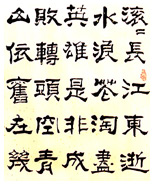 滾〻長江東逝
水浪花淘盡
英雄是非成
敗轉頭空青
山依舊在幾